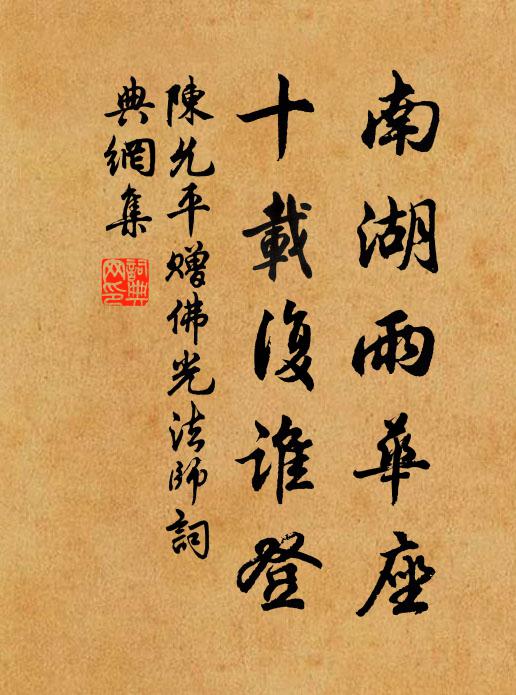 南湖雨華座
十載復誰登
陳允平贈佛光法師詞
典網集
詞典網印